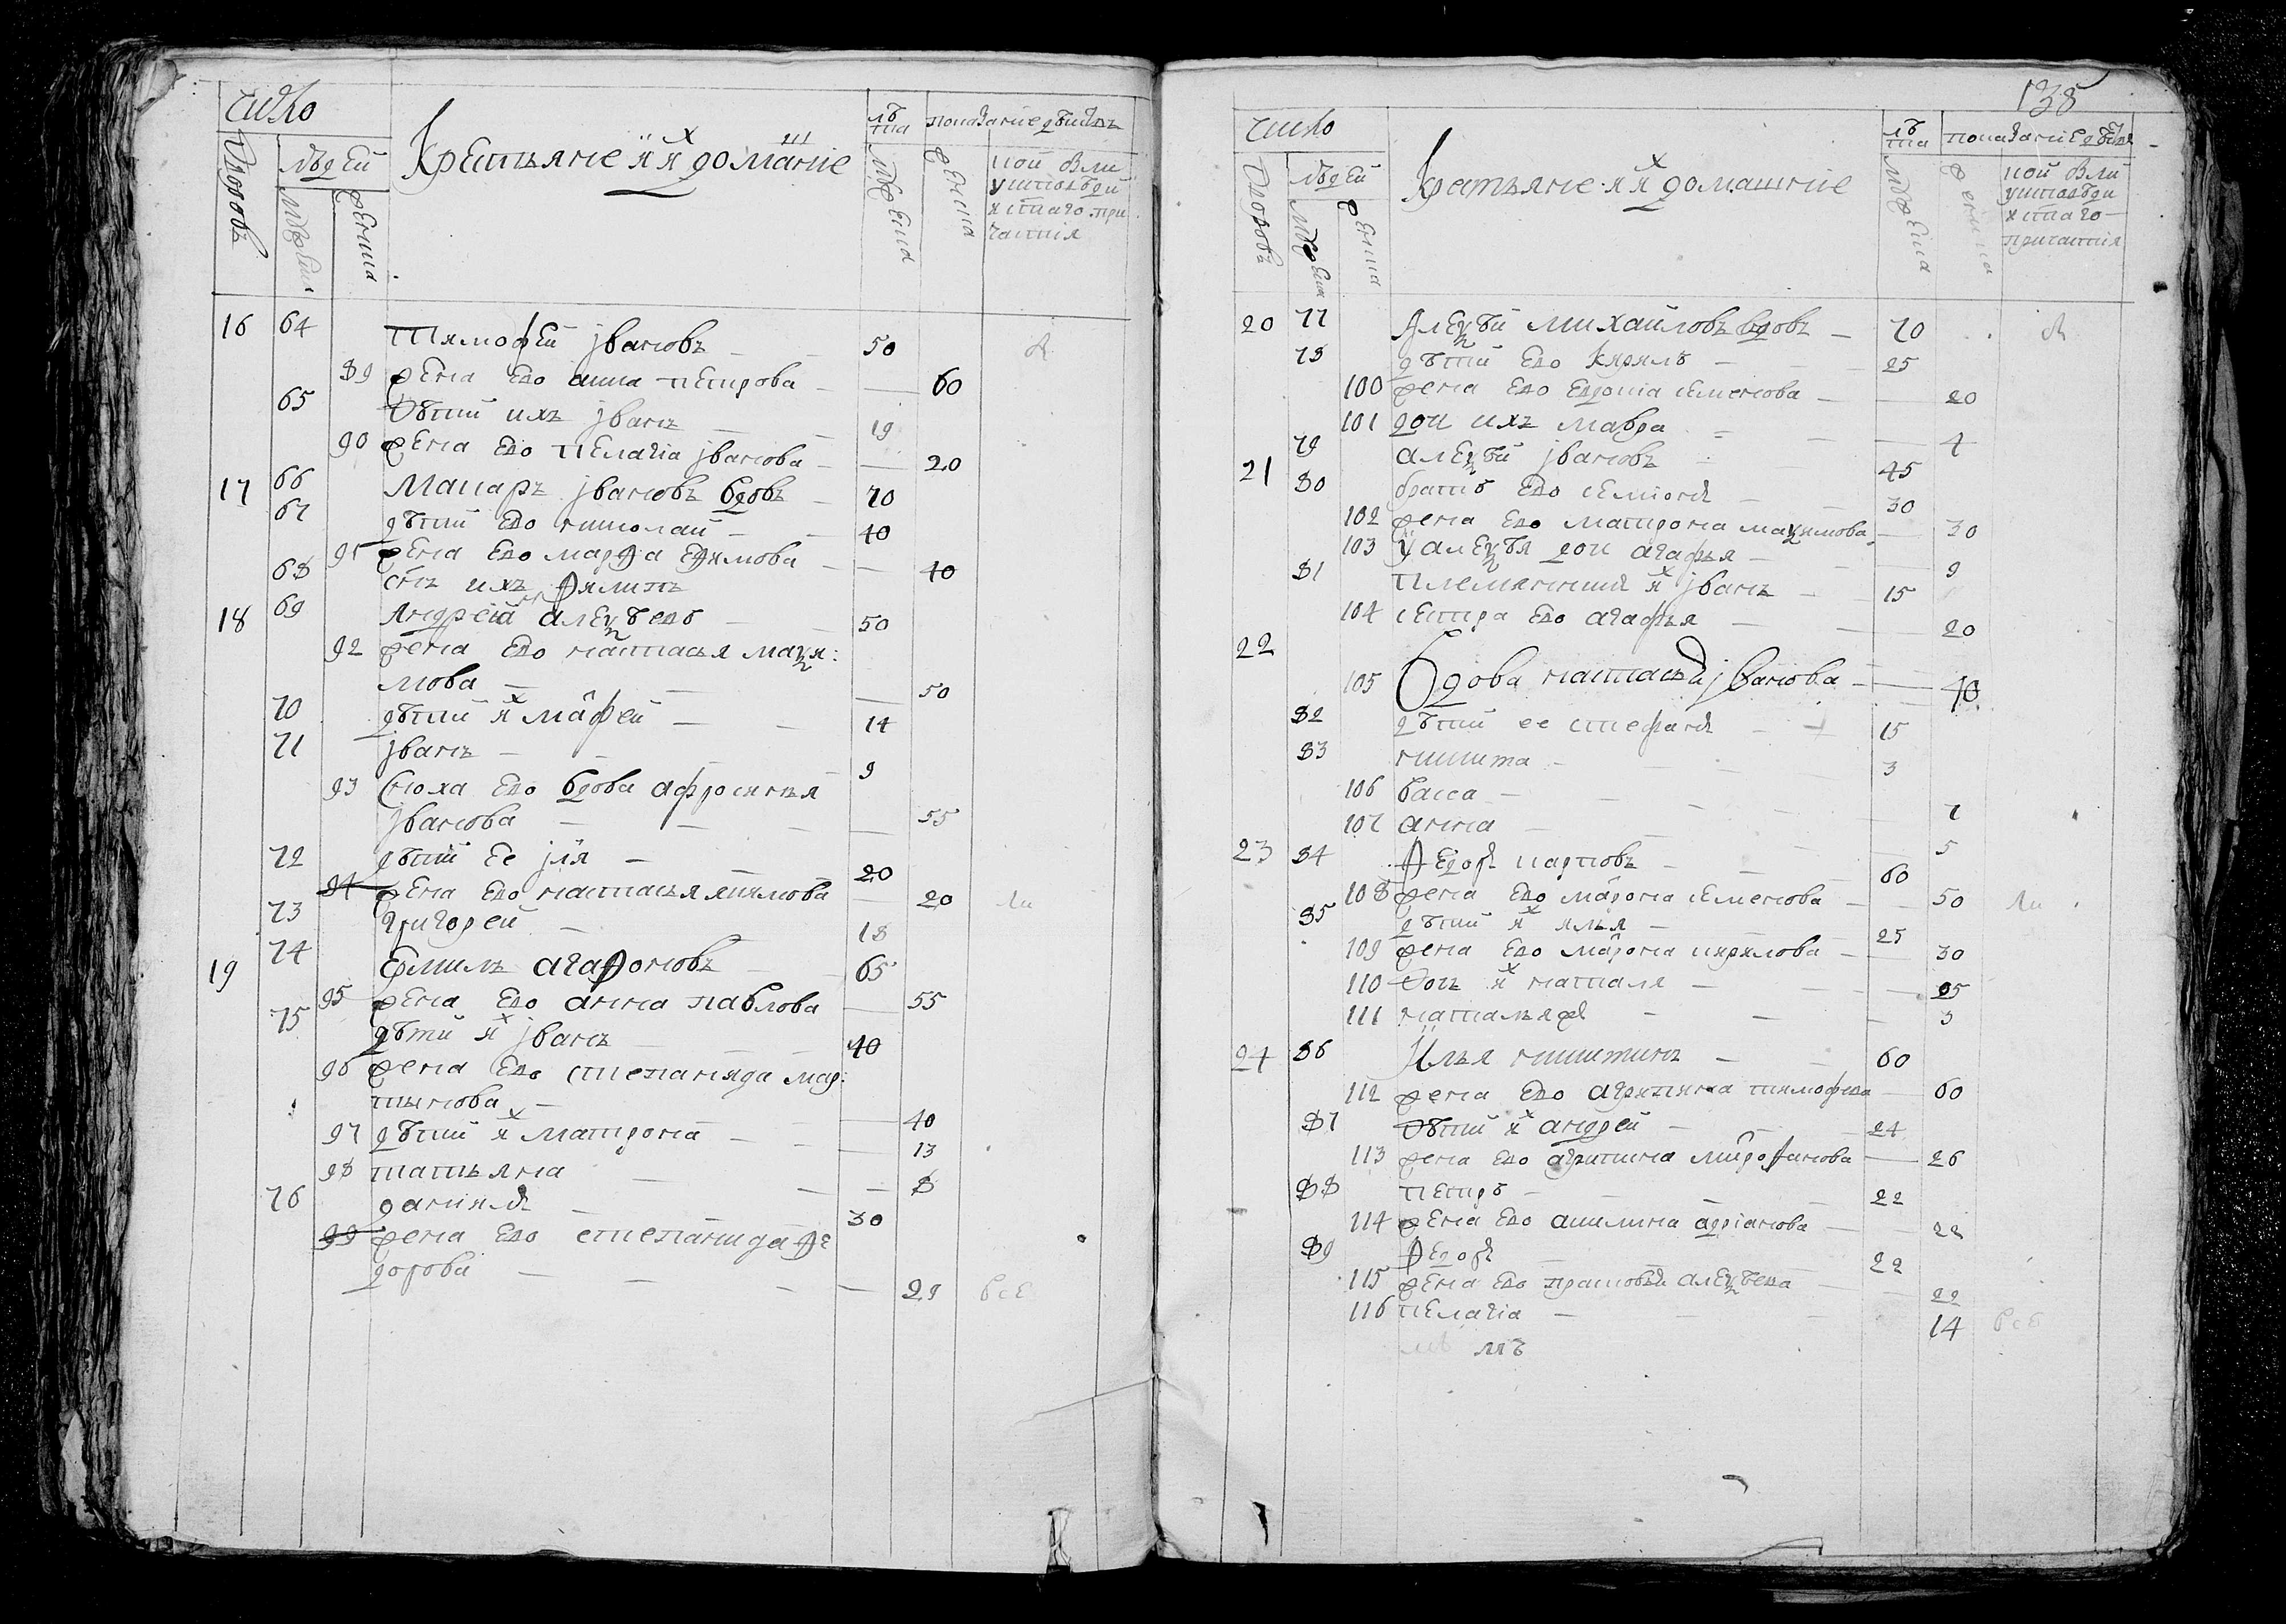 число
дворовъ
людей
мужеска
женска
Крестьяне и ихъ домашние
лѣта
мужеска
женска
показание дѣйств
кой вли
у исповѣди
и с таго при
частия
16 64 Тимофей Ивановъ 50
89 жена его анна петрова 60
65 дѣти ихъ Иванъ 19
90 жена его пелагия Иванова 20
17 66 Макаръ Ивановъ вдовъ 70
67 дѣти его николай 40
91 жена его марфа ефимова 40
68 снъ ихъ филипъ
18 69 Андрей алеѯѣевъ 50
92 жена его настасья маѯи:
мова 50
70 дѣти их матфей 14
71 Иванъ 9
93 Сноха его вдова афросинья
Иванова 55
72 дѣти ее Илья 20
94 жена его настасья 20
73 григорей 18
19 74 Ермилъ агафоновъ 65
95 жена его анна павлова 55
75 дѣти их Иванъ 40
96 жена его степанида мар:
тынова 40
97 дѣти их матрона 13
98 татьяна 8
76 данила 30
99 жена его степанида фе
дорова 29 всѣ
138
число
дворовъ
людей
мужеска
женска
Крестьяне и ихъ домашние
лѣта
мужеска
женска
показание дѣйств
кой вли
у исповѣди
и с таго
причастия
20 77 Алеѯѣй михайловъ вдовъ 70
78 дѣти его кирилъ 25
100 жена его евдокия семенова 20
101 дочь ихъ мавра 4
21 79 алеѯѣй Ивановъ 45
80 братъ его семионъ 30
102 жена его матрона маѯимова 30
103 у алеѯѣя дочь агафья 9
81 племянникъ их Иванъ 15
104 сестра его агафья 20
22
105 Вдова настасья Иванова 40
82 дѣти ее стефанъ 15
83 никита 3
106 васса 7
107 анна 5
23 84 Федоръ карповъ 60
108 жена его матрона семенова 50
85 дѣти их илья 25
109 жена его матрона кирилова 30
110 дочь их наталя 05
111 наталья же 3
24 86 Илья никитинъ 60
112 жена его агрипина тимофеева 60
87 дѣти их андрей 24
113 жена его агрипина митрофанова 26
88 петръ 22
114 жена его акилина адрианова 22
89 Федоръ 22
115 жена его прасковья алеѯѣева 22
116 пелагия 14 всѣ